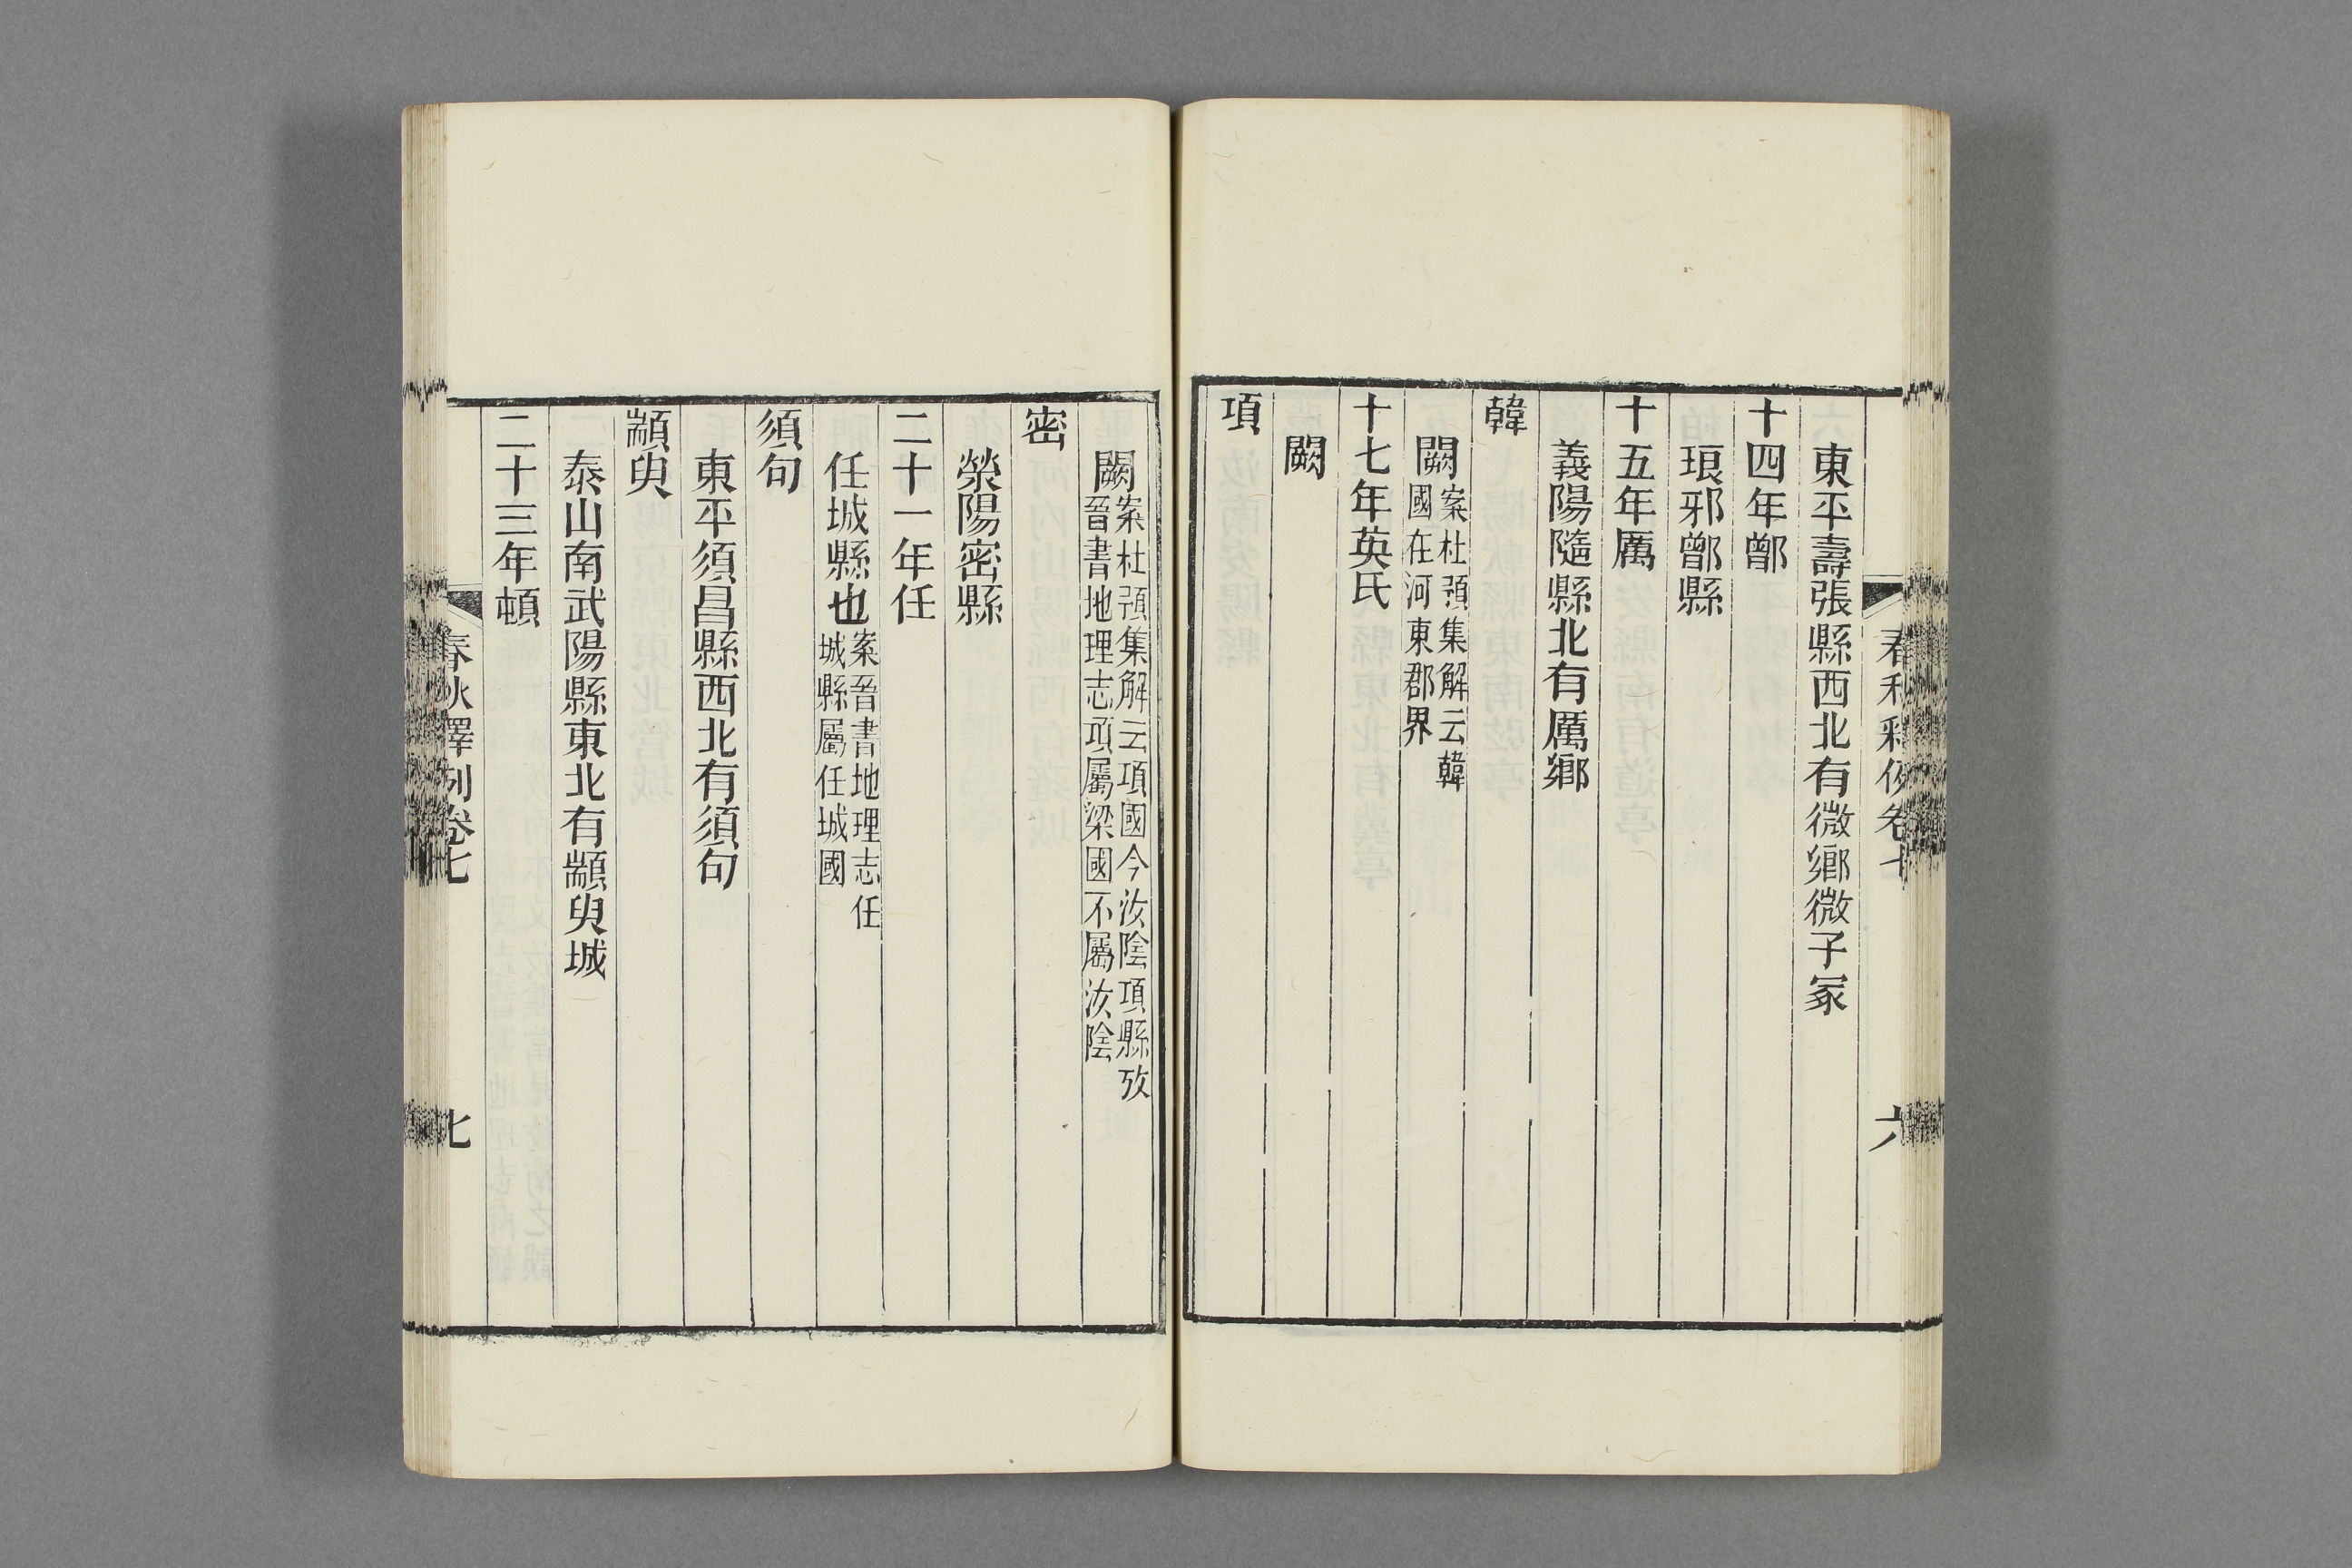 春秋釋例卷七
六
東平壽張縣西北有微鄉微子冢
十四年鄫
琅邪鄫縣
十五年厲
義陽隨縣北有厲鄉
韓
闕案杜預集解云韓國在河東郡界
十七年英氏
闕
項
闕案杜預集解云項國今汝陰項縣攷晉書地理志項屬梁國不屬汝陰
密
滎陽密縣
二十一年任
任城縣也案晉書地理志任城縣屬任城國
須句
東平須昌縣西北有須句
顓臾
泰山南武陽縣東北有顓臾城
二十三年頓
春秋釋例卷七
七